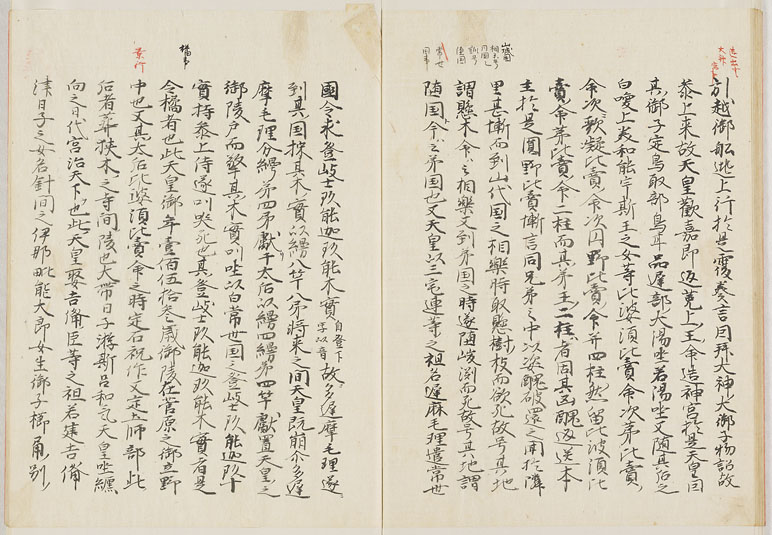 方越御舩逃上行於是覆奏言因拜大神大御子物詔故
叅上来故天皇歡嘉即返菟上王令造神宮於是天皇因
其御子定鳥取部鳥耳品遲部大湯坐若湯坐又随其后之
白喚上美和能宇斯王之女等比婆須比賣命次弟比賣
命次歌凝比賣命次円野比賣命并四柱然留比波須比
賣命弟比賣命二柱而其弟王二柱者因其凶醜返送本
主於是圓野比賣慚言同兄弟之中以姿醜被還之聞於隣
里甚慚而到山代国之相樂時取懸樹枝而欲死故号其地
謂懸木今云相樂又到弟国之時遂随峻渕而死故号其地謂
随国今云弟国也又天皇以三宅連等之祖名遅麻毛理遣常世
山城国
常世
國令求登岐士玖能迦玖能木實自登下字以音故多遲摩毛理遂
到其国採其木實以縵八竿八矛將来之間天皇既崩尒多遲
摩毛理分縵四縵矛四矛獻于太后以縵四縵矛四竿獻置天皇之
御陵戸而擎其木實叫坐以白常世国之登岐士玖能迦玖能木
實持叅上侍遂叫哭死也其登岐士玖能迦玖能木實者是
今橘者也此天皇御年壹佰伍拾叁歳御陵在菅原之御立野
中也又其太后比婆須比賣命之時定石祝作又定土師部此
后者葬狭木之寺間陵也大帯日子淤斯呂和氣天皇坐纏
向之日代宮治天下也此天皇娶吉備臣等之祖若建吉備
津日子之女名針間之伊那毗能大郎女生御子櫛角別
橘事
景行